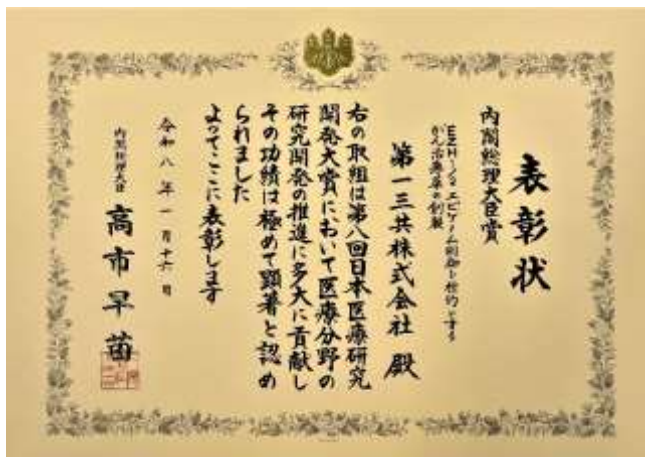 表彰状
内閣総理大臣賞
EZH1/2 エピゲノム制御を標的とする
がん治療薬の創製
第一三共株式会社 殿
右の取組は第八回日本医療研究
開発大賞において医療分野の
研究開発の推進に多大に貢献し
その功績は極めて顕著と認め
られました
よってここに表彰します
令和八年一月十六日
内閣総理大臣
高市早苗